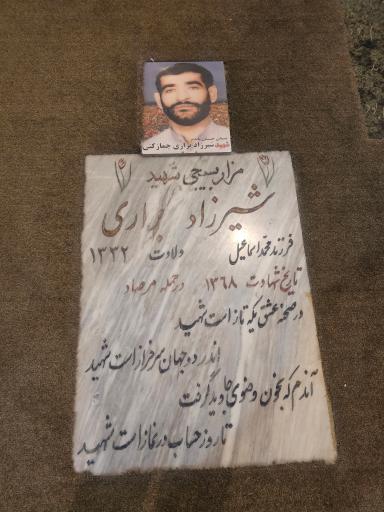 شهید شیرزاد براری چمازکتی
مزار بسیجی شهید
شیرزاد براری
فرزند محمد اسماعیل ولادت ۱۳۳۲
تاریخ شهادت ۱۳۶۸ در حمله مرصاد
در صحنه عشق یکه تاز است شهید
اندر دو جهان سرفراز است شهید
آندم که بخون وضوی جاوید گرفت
تا روز حساب در نماز است شهید